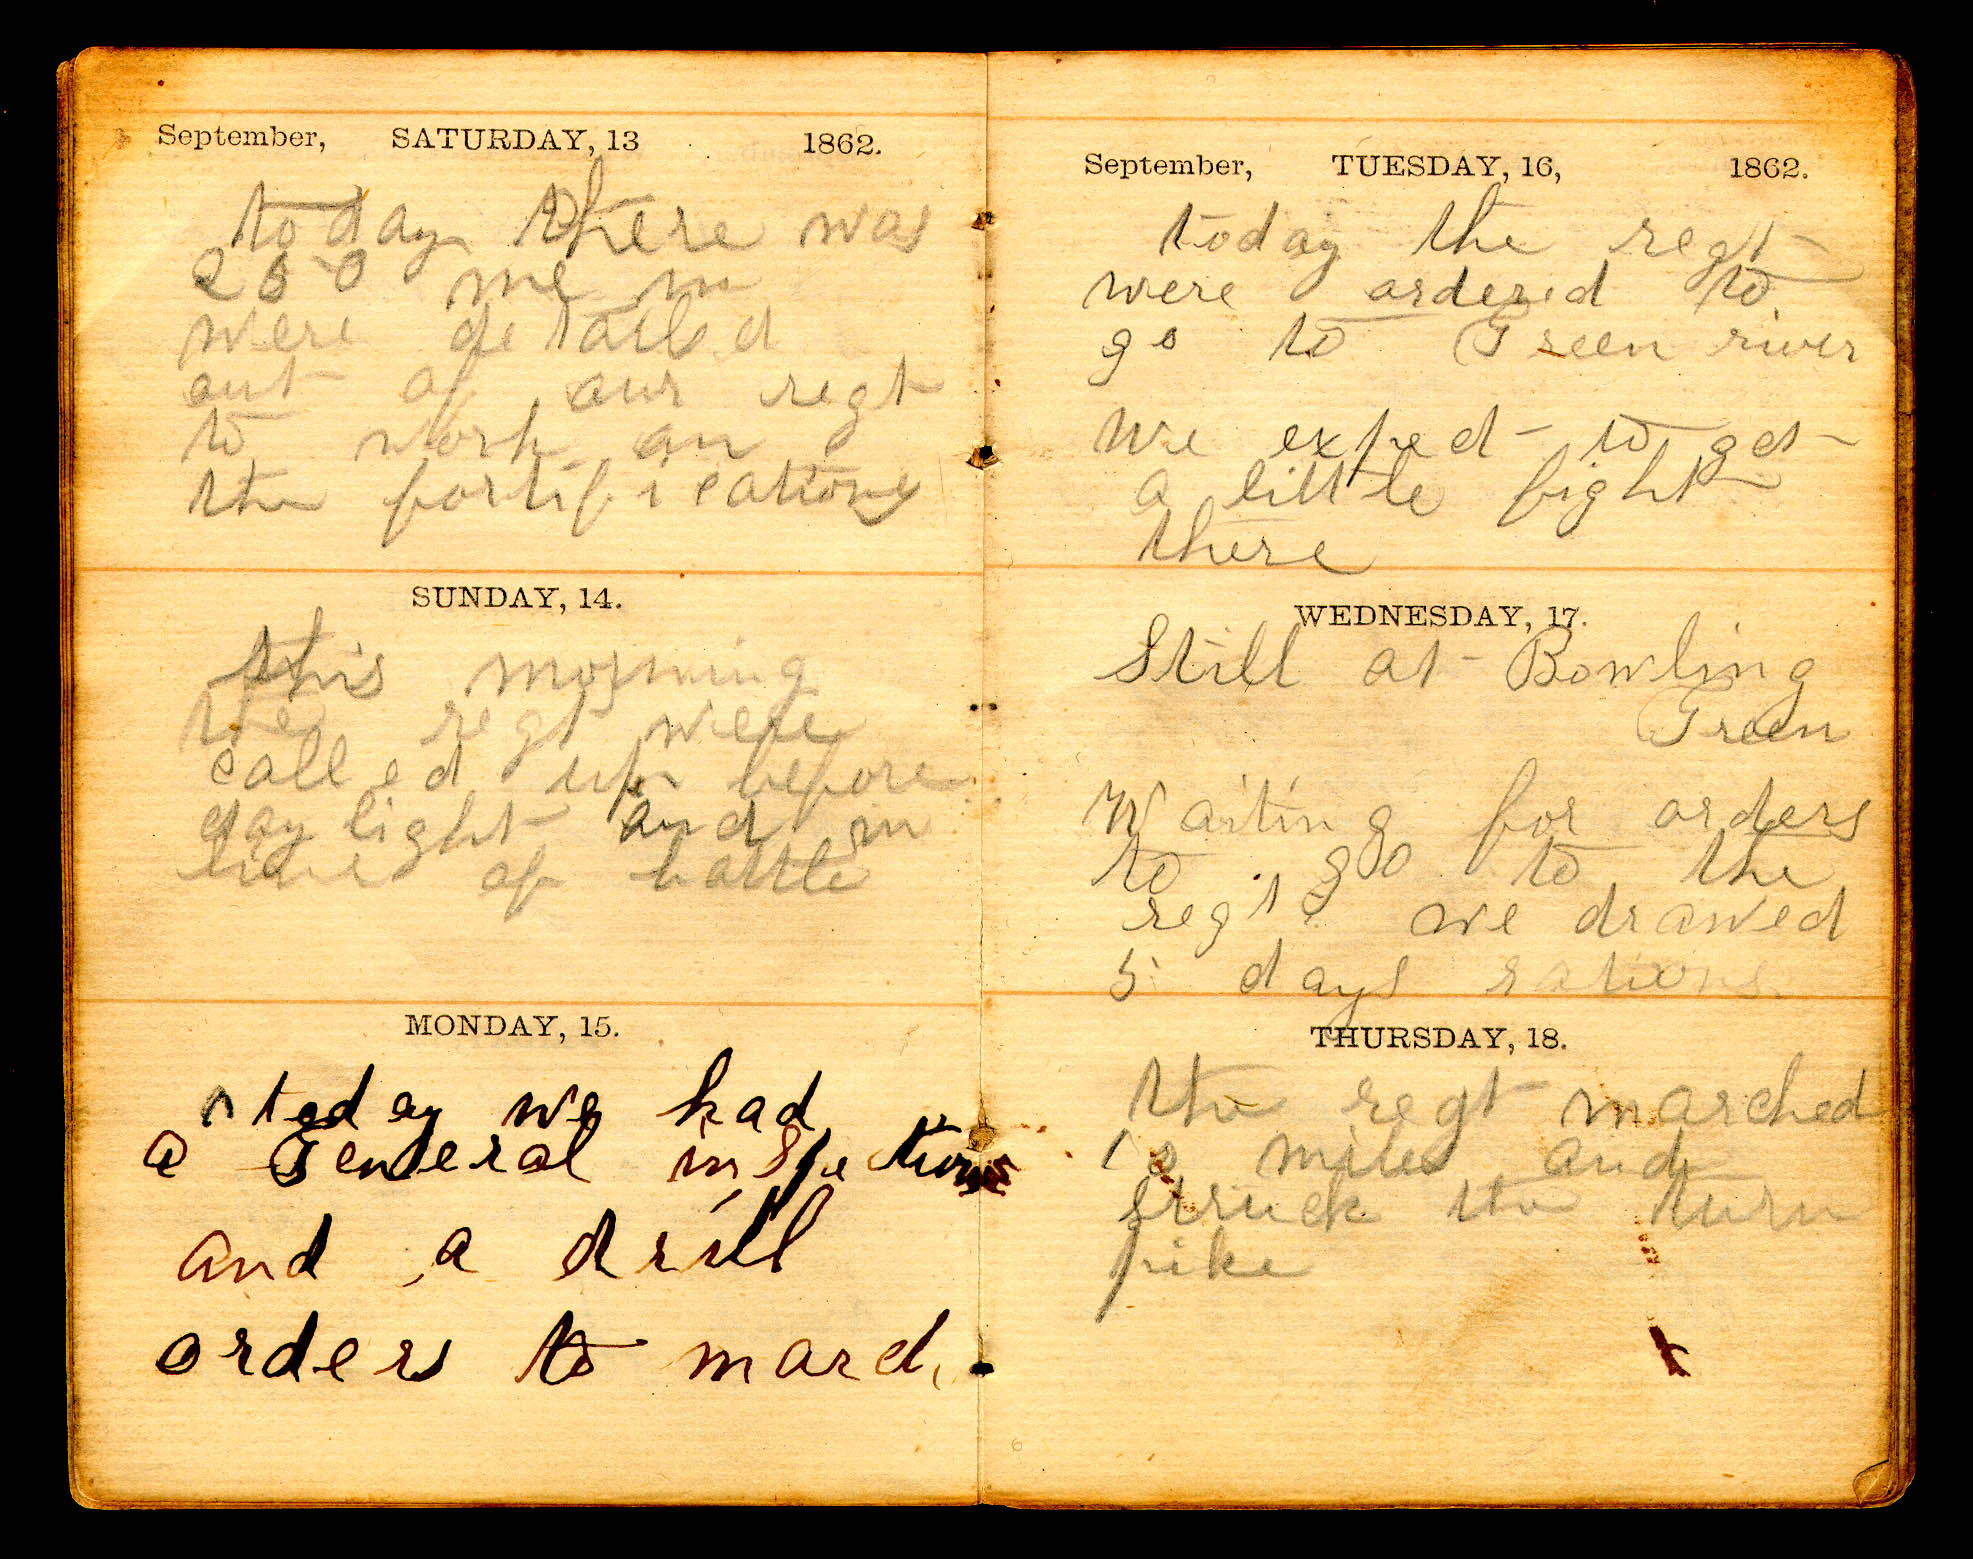 September, SATURDAY, 13 1862.
today there was
250 me m
were detailed
out of our regt
to work on
the fortifications
SUNDAY, 14.
this morning
the regt were
called up before
day light and in
line of battle
MONDAY, 15.
today we had
a General inspection
and a drill
orders to march
September, TUESDAY, 16, 1862.
today the regt
were ordered to
go to Green river
we exped to get
a little fight
there
WEDNESDAY, 17.
Still at Bowling
Green
Waiting for orders
to go to the
regt we drawed
5 days rations.
THURSDAY, 18.
the regt marched
miles and
struck the turn
pike